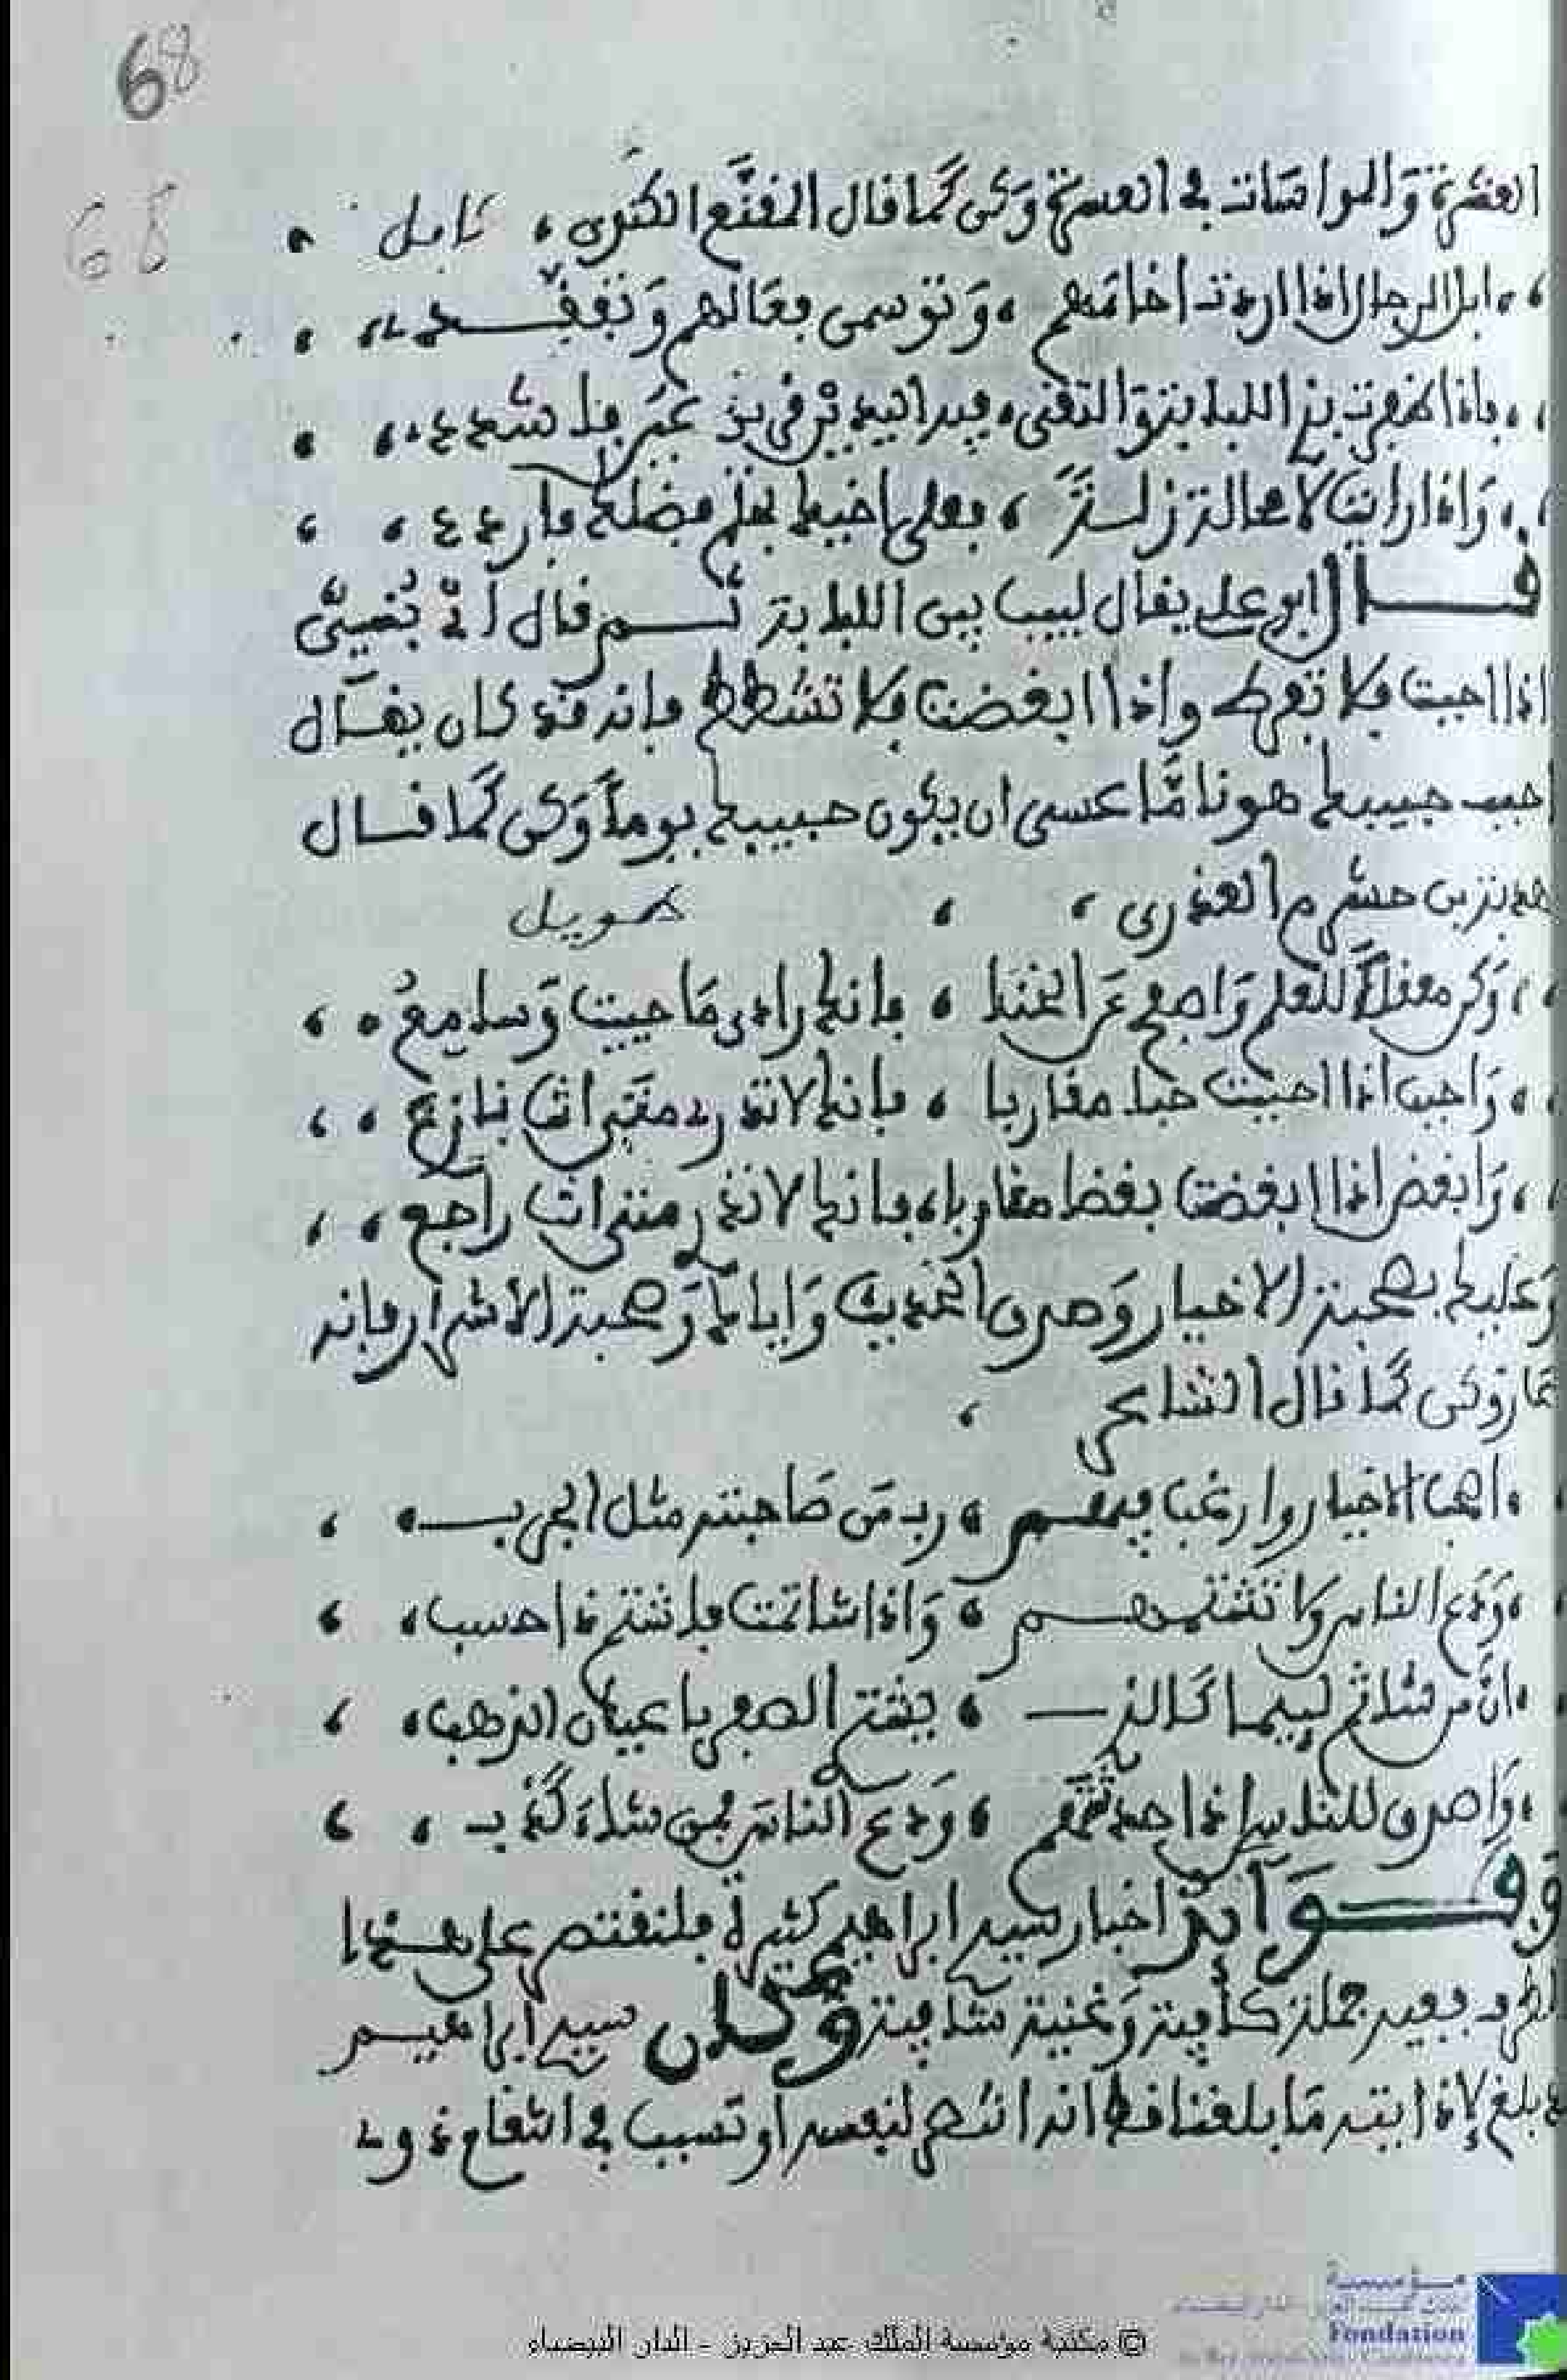 68
68
العشرة والمواسات في العسرة وكن كما قال المقنع الكندي كامل
ابل الرجال اذا اردت اخاءهم وتوسمن فعالهم وتفقد
فاذا ظفرت بذي اللبابة والتقى فبه اليدين قرير عين فاشدد
واذا رايت لا محالة زلة فعلى اخيك بفضل حلمك فاردد
قال ابو علي يقال لبيب بين اللبابة ثم قال أي بني
اذا احببت فلا تفرط واذا ابغضت فلا تشطط فانه قد كان يقال
احبب حبيبك هونا ما عسى ان يكون حبيبك يوما وكن كما قال
هدبة بن خشرم العذري طويل
وكن معقلا للحلم واصفح عن الخنا فانك راء ما حييت وسامع
واحبب اذا احببت حبا مقاربا فانك لا تدري متى انت نازع
وابغض اذا ابغضت بغضا مقاربا فانك لا تدري متى انت راجع
وعليك بصحبة الاخيار وصدق الحديث واياك وصحبة الاشرار فانه
عار وكن كما قال الشاعر
اصحب الاخيار وارغب فيهم رب من صاحبته مثل الجرب
ودع الناس ولا تشتمهم واذا شاتمت فاشتم ذا حسب
ان من شاتم لئيما كالذي يشتري الصفر باعيان الذهب
واصدق الناس اذا حدثتهم ودع الناس فمن شاء كذب
وفوائد اخبار سيدي ابراهيم كثيرة فلنقتصر على هذا
ففيه جملة كافية وغنية شافية وكان سيدي ابراهيم
بلغ لاذايته ما بلغنا قط انه انتصر لنفسه او تسبب في انتقام
© مكتبة مؤسسة الملك عبد العزيز - الدار البيضاء
مؤسسة
Fondation